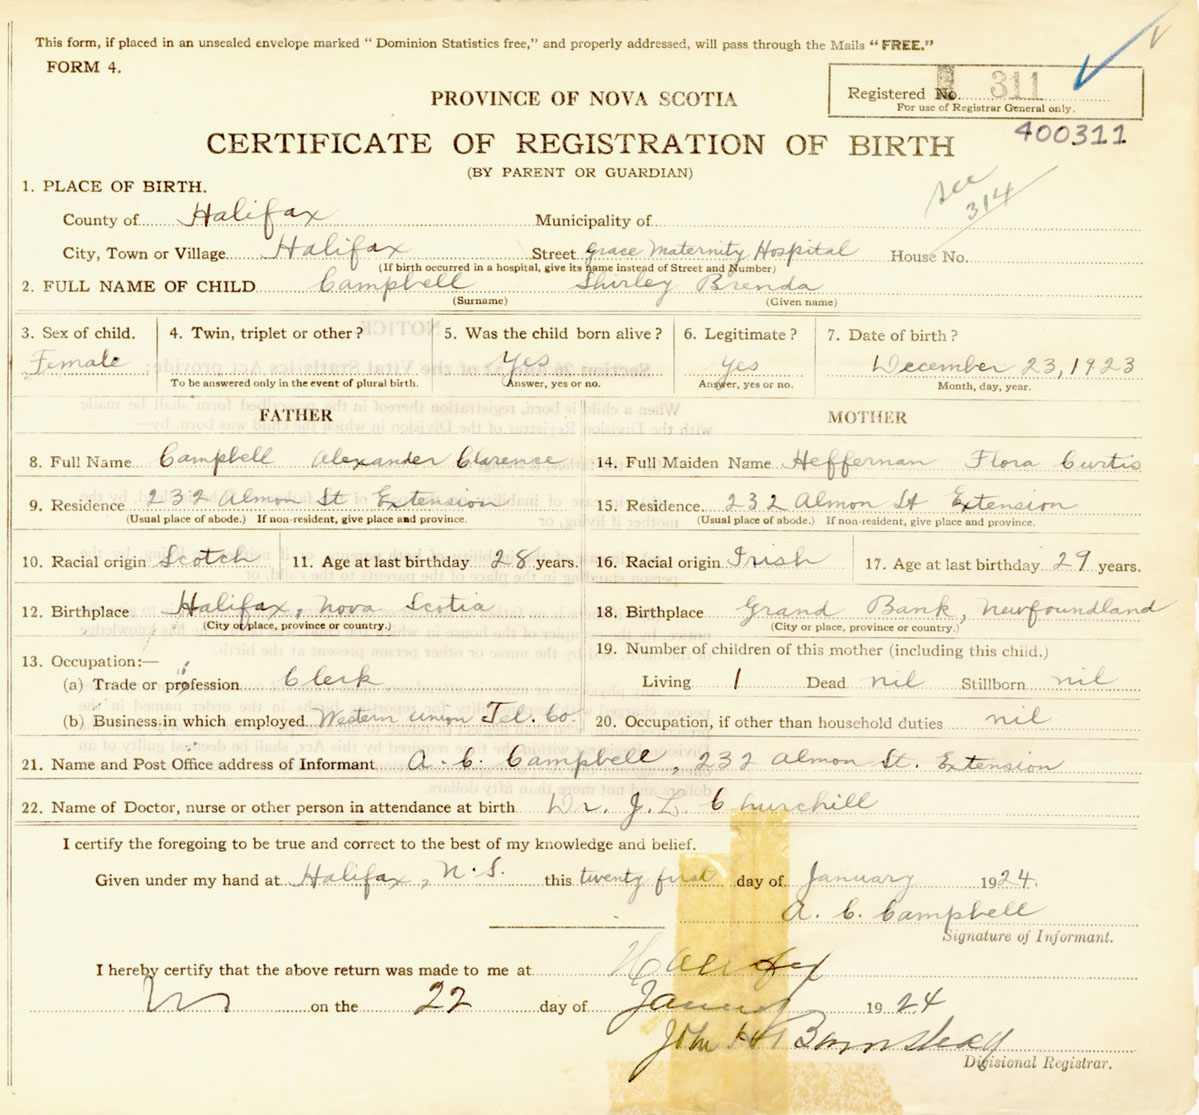 This form, if placed in an unsealed envelope marked “ Dominion Statistics free,” and properly addressed, will pass through the Mails “FREE.”
FORM 4.
Registered No. 311
For use of Registrar General only.
PROVINCE OF NOVA SCOTIA
400311
CERTIFICATE OF REGISTRATION OF BIRTH
(BY PARENT OR GUARDIAN)
see 314
1. PLACE OF BIRTH.
County of Halifax Municipality of
City, Town or Village Halifax Street Grace Maternity Hospital House No.
(If birth occurred in a hospital, give its name instead of Street and Number)
2. FULL NAME OF CHILD Campbell Shirley Brenda
(Surname) (Given name)
3. Sex of child. 4. Twin, triplet or other? 5. Was the child born alive? 6. Legitimate? 7. Date of birth?
Female Yes Yes December 23, 1923
To be answered only in the event of plural birth. Answer, yes or no. Answer, yes or no. Month, day, year.
FATHER MOTHER
8. Full Name Campbell Alexander Clarence 14. Full Maiden Name Heffernan Flora Curtis
9. Residence 232 Almon St Extension 15. Residence 232 Almon St Extension
(Usual place of abode.) If non-resident, give place and province. (Usual place of abode.) If non-resident, give place and province.
10. Racial origin Scotch 11. Age at last birthday 28 years. 16. Racial origin Irish 17. Age at last birthday 29 years.
12. Birthplace Halifax, Nova Scotia 18. Birthplace Grand Bank, Newfoundland
(City or place, province or country.) (City or place, province or country.)
13. Occupation:— 19. Number of children of this mother (including this child.)
(a) Trade or profession Clerk Living 1 Dead nil Stillborn nil
(b) Business in which employed Western Union Tel. Co. 20. Occupation, if other than household duties nil
21. Name and Post Office address of Informant A. C. Campbell, 232 Almon St. Extension
22. Name of Doctor, nurse or other person in attendance at birth Dr. J. L. Churchill
I certify the foregoing to be true and correct to the best of my knowledge and belief.
Given under my hand at Halifax, N.S. this twenty first day of January 1924.
A. C. Campbell
Signature of Informant.
I hereby certify that the above return was made to me at Halifax
on the 22 day of January 1924
John H Barnstead
Divisional Registrar.